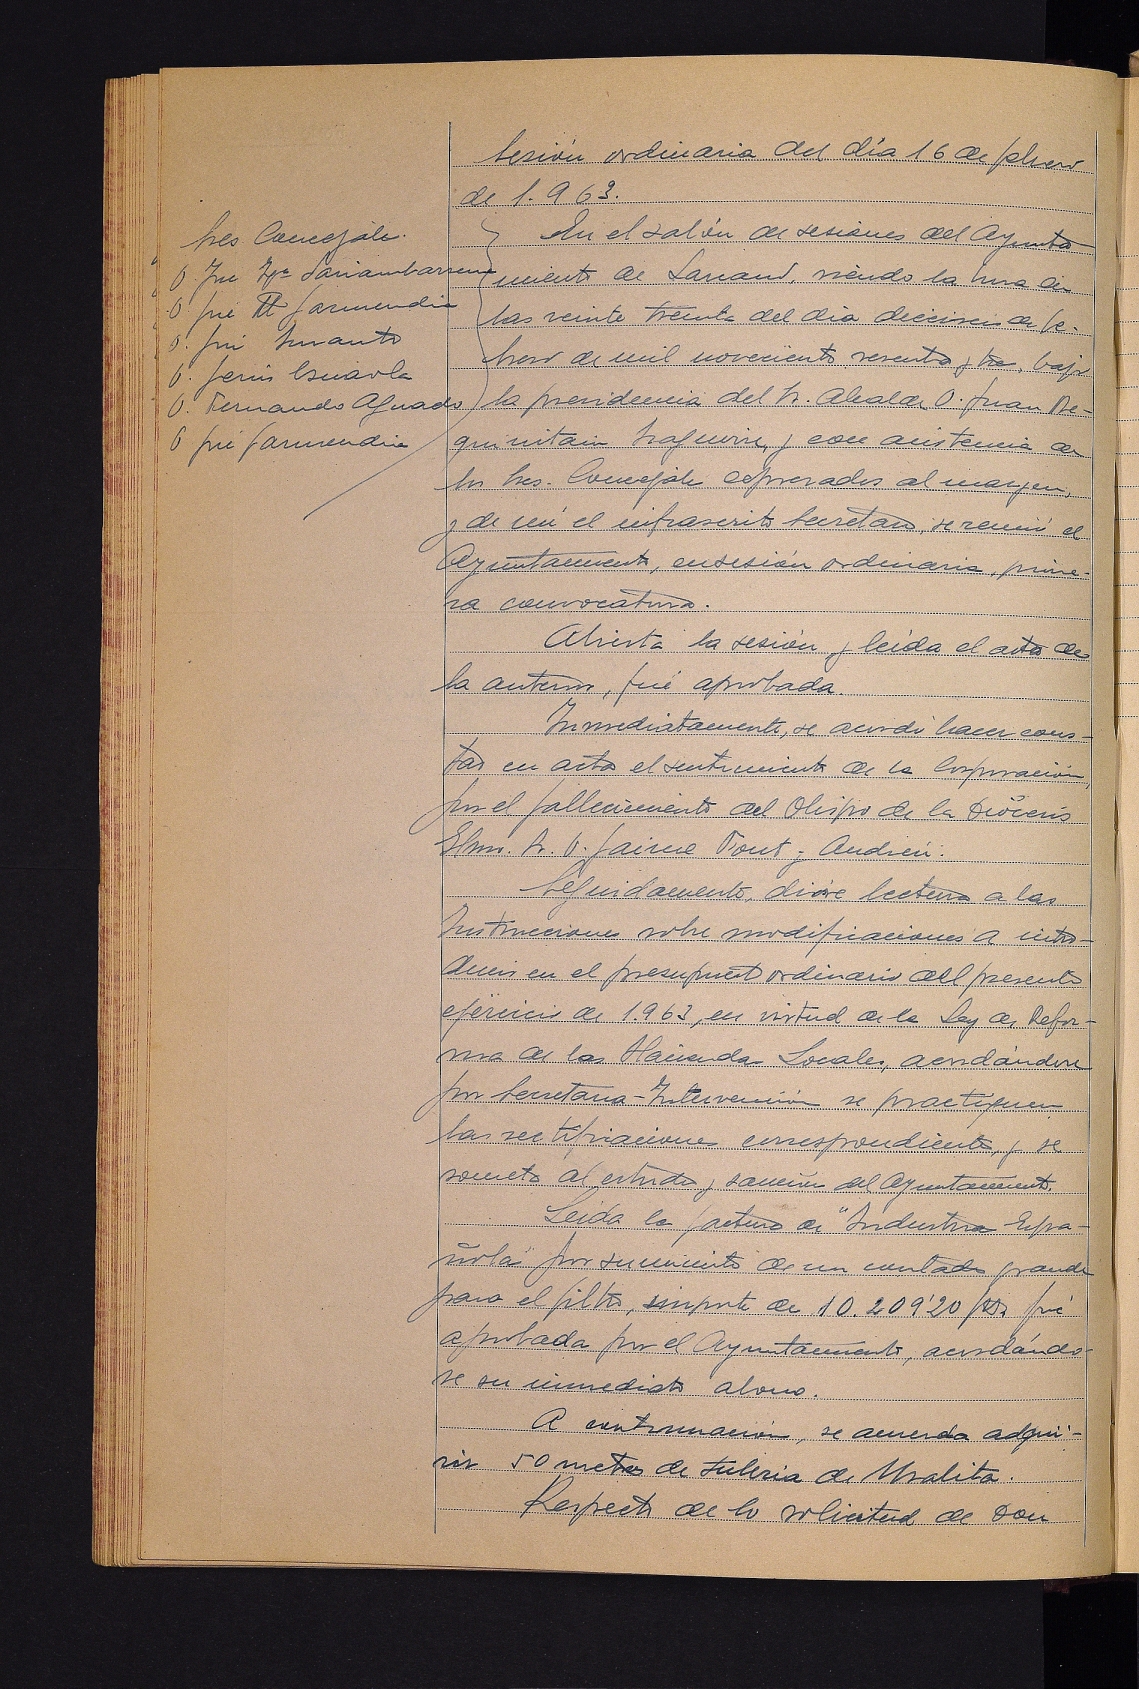 Sesión ordinaria del día 16 de febrero
de 1.963.
Sres Concejales.
D. José
D. José Mª Garmendia
D. José
D. Jesús
D. Fernando Aguado
D José Garmendia
En el salón de sesiones del Ayunta
miento de Lasarte, siendo la hora de
las veinte treinta del día dieciseis de fe-
brero de mil novecientos sesenta y tres, bajo
la presidencia del Sr. Alcalde D. Juan Be-
y con asistencia de
los Sres. Concejales expresados al margen,
y de mí el infrascrito Secretario, se reunió el
Ayuntamiento, en sesión ordinaria, prime-
ra convocatoria.
Abierta la sesión y leída el acta de
la anterior, fué aprobada.
Inmediatamente, se acordó hacer cons-
tar en acta el sentimiento de la Corporación,
por el fallecimiento del Obispo de la Diócesis
Sr. D. Jaime Font y Andreu.
Seguidamente, dióse lectura a las
Instrucciones sobre modificaciones a intro-
ducir en el presupuesto ordinario del presente
ejercicio de 1.963, en virtud de la Ley de Refor-
ma de las Haciendas Locales, acordándose
por Secretaria-Intervención se practiquen
las rectificaciones correspondientes, y se
someta al estudio y sanción del Ayuntamiento.
Leída la factura de "Industria Espa-
ñola" por suministro de un contador grande
para el filtro, importe de 10.209'20 pts. fué
aprobada por el Ayuntamiento, acordándo-
se su inmediato abono.
A continuación, se acuerda adqui-
rir 50 metros de tubería de Uralita.
Respecto de la solicitud de Don